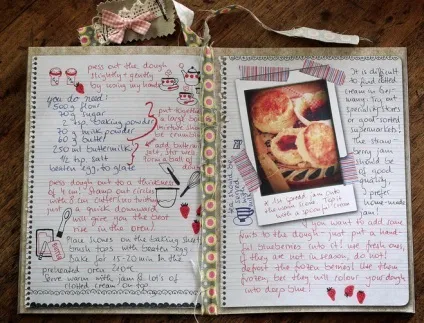 press out the dough
slightly + gently
by using my hand
you do need:
500g flour
70g sugar
2 tsp. baking powder
70g butter
60g
250ml buttermilk
½ tsp salt
beaten egg to glaze
put together in
a large bowl
mixture should
be crumbly
add buttermilk
stir well
form a ball of
press dough out to a thickness
of 4cm! Stamp out circles
with 5cm cutters no twisting
just a quick downward
will give you the best
rise in the oven!
Place scones on the baking sheet
brush tops with beaten egg.
Bake for 15-20 min. In the
preheated oven 220°C
serve warm with jam & lots of
clotted cream on top
It is difficult
to find clotted
cream in Ger-
many. Try out
special stores
or good-sorted
supermarkets!
The straw-
berry jam
should be
of good
quality
I prefer
home-made
jam.
x 1st spread jam onto
the warm scone. Top it
with a spoon of cream
you want to add some
fruits to the dough - just put a hand
full blueberries into it! Use fresh ones,
if they are not in season, do not!
defrost the frozen berries! Use them
frozen, bec. they will colour your dough
into deep blue!